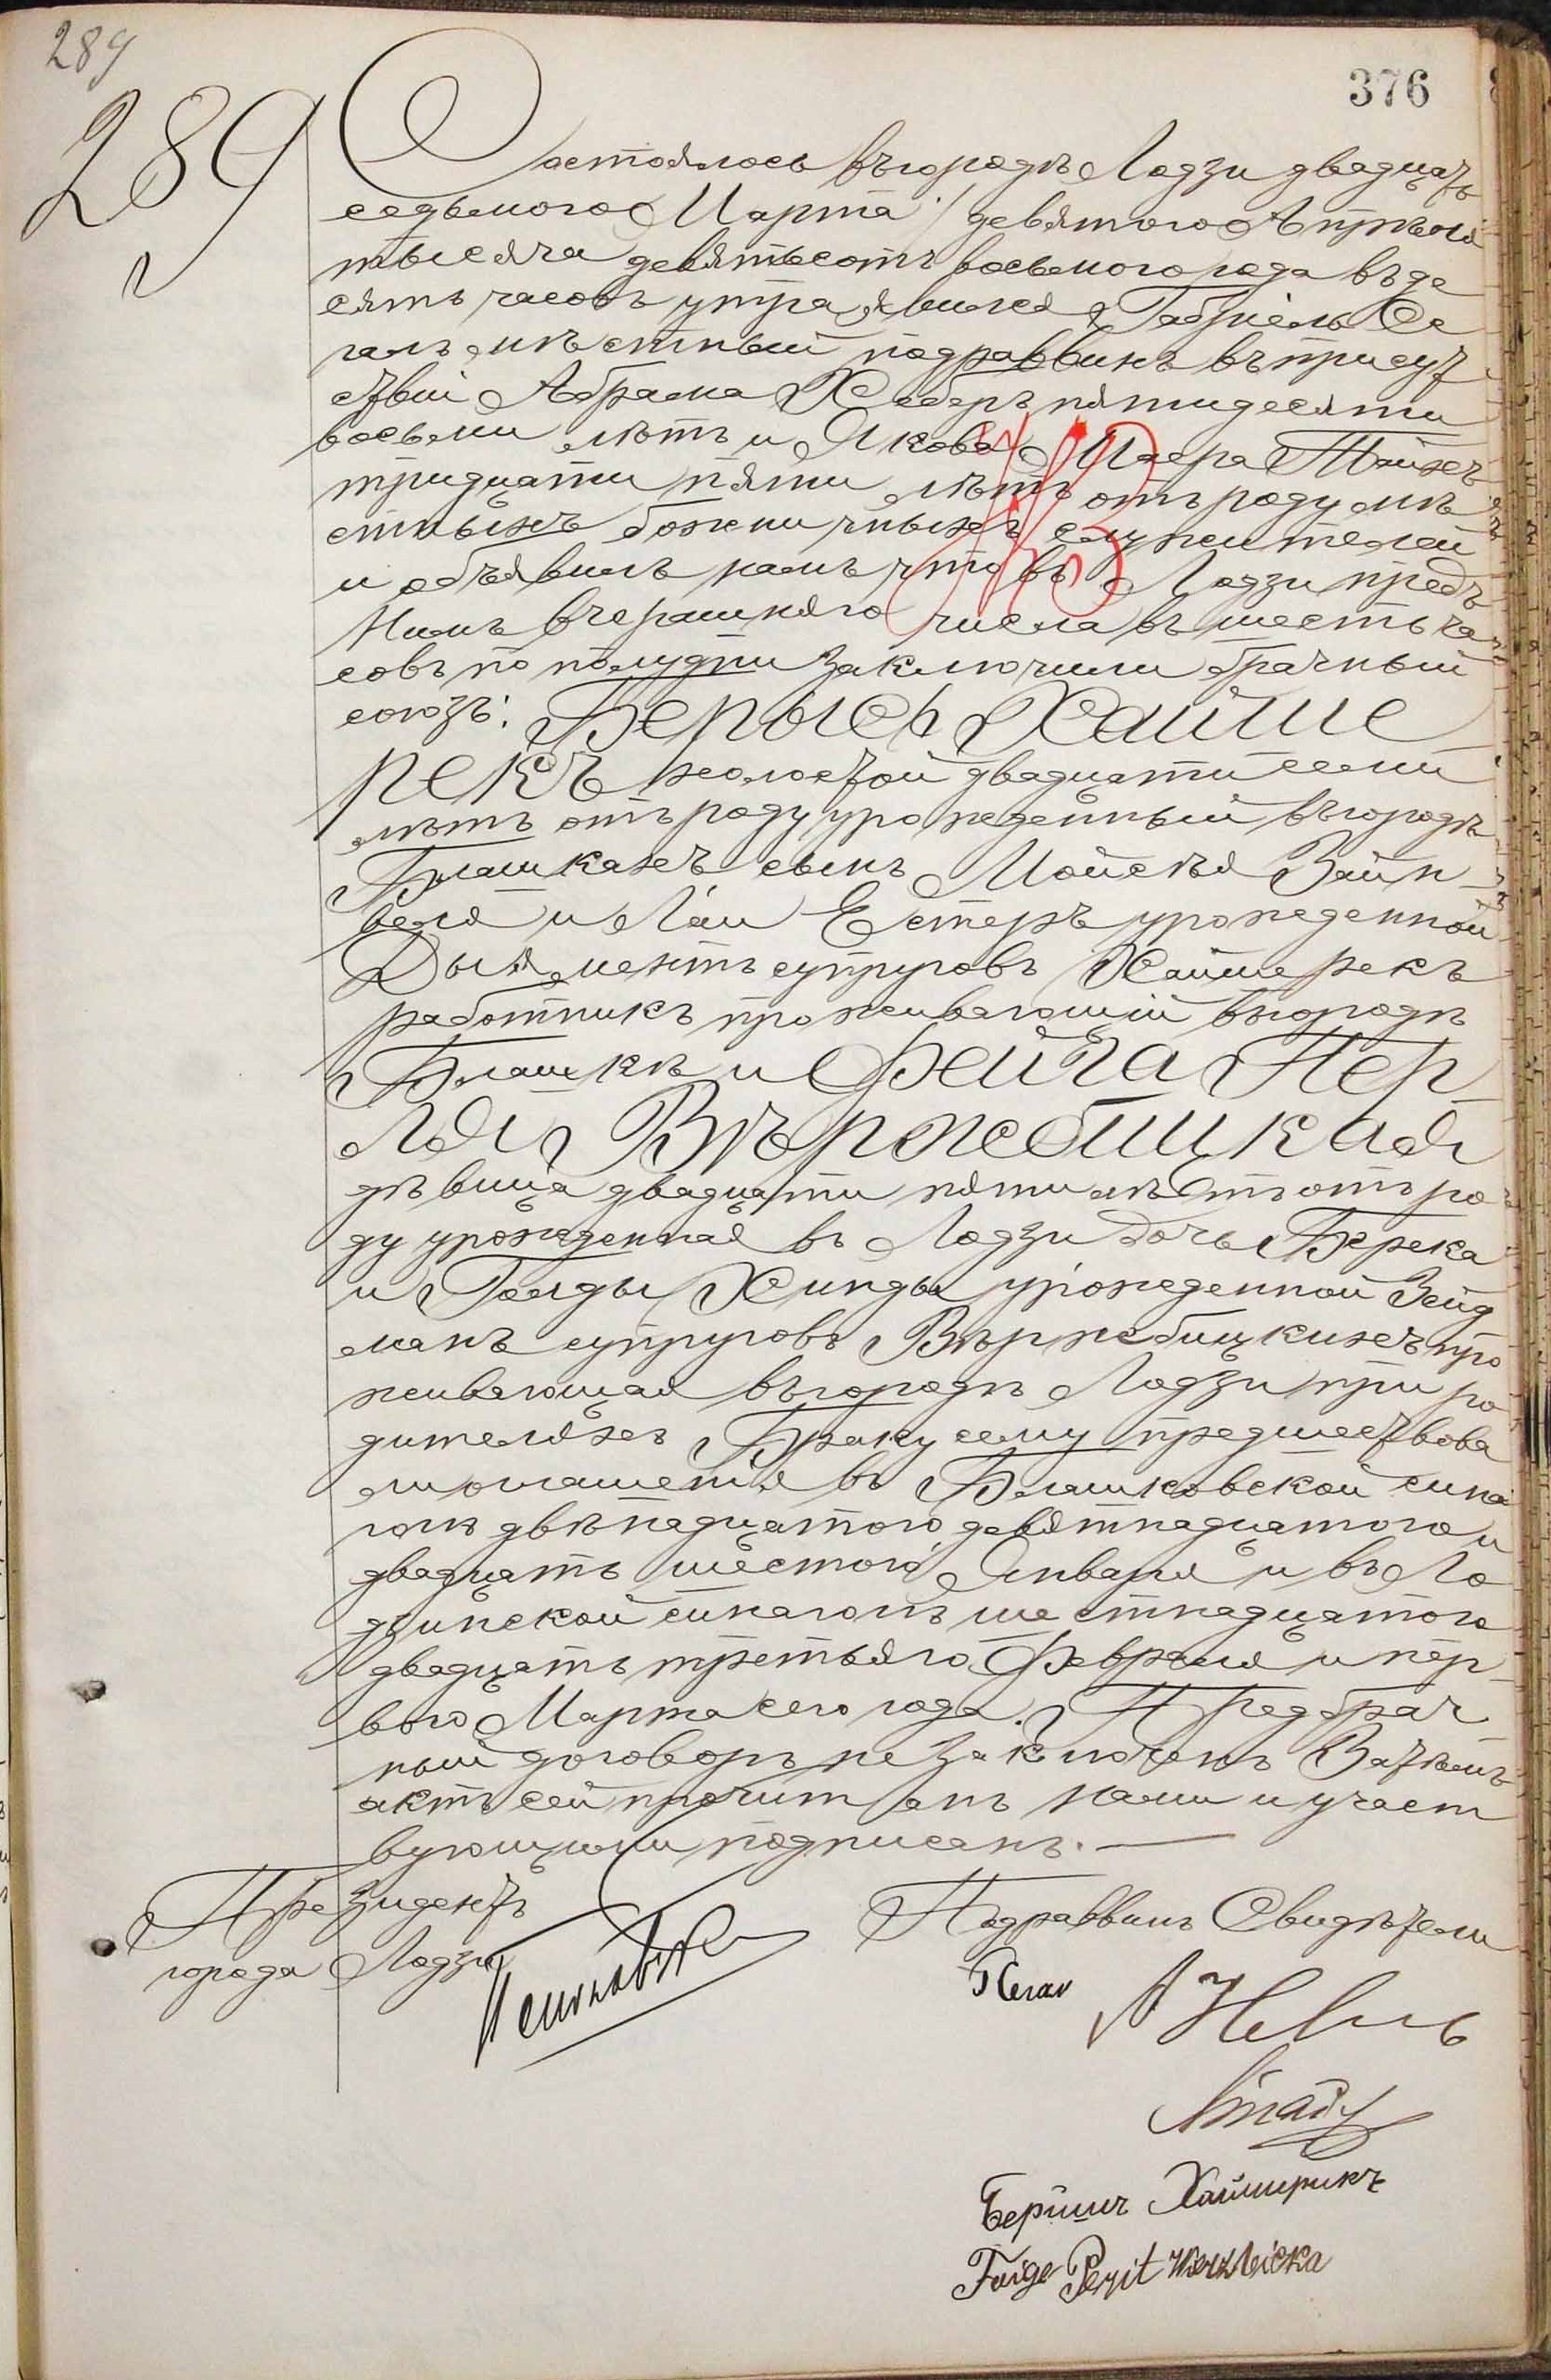 289
376
289
Состоялось въ городѣ Лодзи двадцать
седьмого Марта / девятого Апрѣля
тысяча девятьсотъ восьмого года въ де
сять часовъ утра. Явился Габріель Се
галъ мѣстный подраввинъ въ присут
ствіи Абрама Хеберъ пятидесяти
восьми лѣтъ и Якова Маера
тридцати пяти лѣтъ отъ роду мѣ
стныхъ божничныхъ служителей
и объявилъ намъ что въ Лодзи предъ
Нимъ вчерашняго числа въ шесть ча
совъ по полудни заключили брачный
союзъ: Берышъ Хайше
рекъ холостой двадцати семи
лѣтъ отъ роду урожденный въ городѣ
Блашкахъ сынъ Мойсѣя Зайн
веля и Лаи Естеръ урожденной
Дыяментъ супруговъ Хайшерекъ
работникъ проживающій въ городѣ
Блашкѣ и Фейга Пер
ля Вѣржбицкая
дѣвица двадцати пяти лѣтъ отъ ро
ду урожденная въ Лодзи дочь Берека
и Голды Хинды урожденной Зейд
манъ супруговъ Вѣржбицкихъ про
живающая въ городѣ Лодзи при ро
дителяхъ Браку сему предшествова
ли оглашенія въ Блашковской сина
гогѣ двѣнадцатого девятнадцатого и
двадцать шестого Января и въ Ло
дзинской синагогѣ шестнадцатого
двадцать третьяго Февраля и пер
вого Марта сего года. Предбрач
ный договоръ не заключенъ Затѣмъ
актъ сей прочитанъ нами и участ
вующими подписанъ. —
Президентъ
города Лодзи
Подраввинъ Свидѣтели
Бериш Хаймерикъ
Faige Perjit Wierzbicka